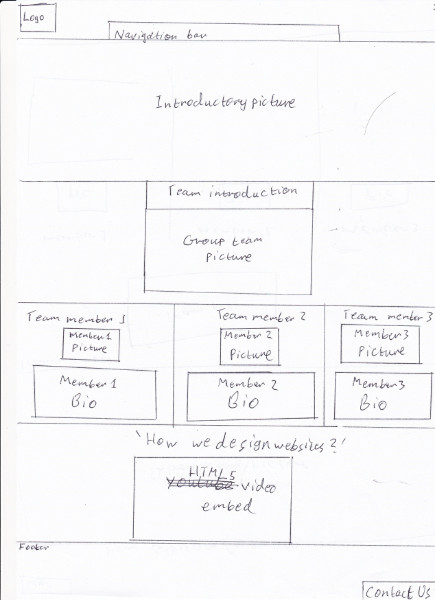 Logo
Navigation bar
Introductory picture
Team introduction
Group team
Picture
Team member 1
Team member 2
Team member 3
Member 1
Picture
Member 2
Picture
Member 3
Picture
Member 1
Bio
Member 2
Bio
Member 3
Bio
'How we design websites?'
HTML5
Youtube video
embed
Footer
Contact Us